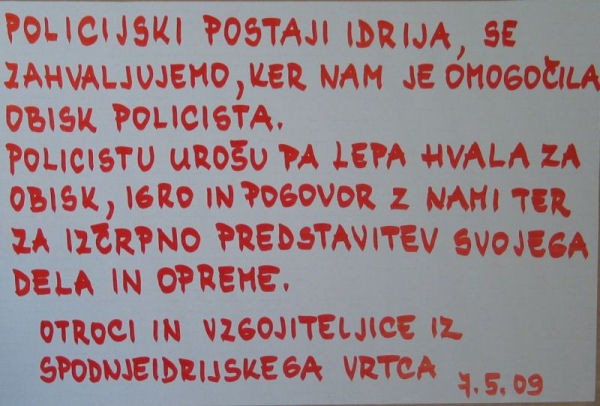 POLICIJSKI POSTAJI IDRIJA, SE
ZAHVALJUJEMO, KER NAM JE OMOGOČILA
OBISK POLICISTA.
POLICISTU UROŠU PA LEPA HVALA ZA
OBISK, IGRO IN POGOVOR Z NAMI TER
ZA IZČRPNO PREDSTAVITEV SVOJEGA
DELA IN OPREME.
OTROCI IN VZGOJITELJICE IZ
SPODNJEIDRIJSKEGA VRTCA
7.5.09